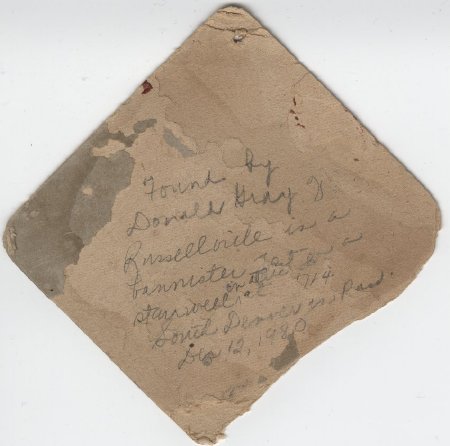 Found by
Donald Gray of
Russellville is a
bannister a
stairwell, at 714
South Denver in Rus.
Dec 12, 1980